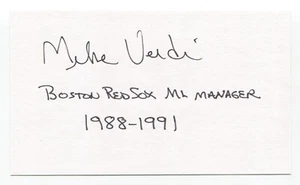 Mike Verdi
BOSTON RED SOX ML MANAGER
1988-1991